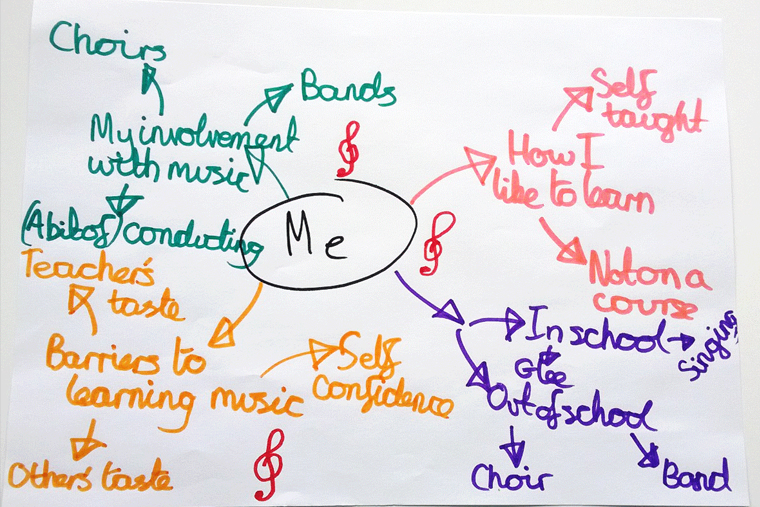 Choirs
Bands
My involvement
with music
(A bit of) conducting
Me
Self
taught
How I
like to learn
Not on a
course
Teacher's
taste
Barriers to
learning music
Self
Confidence
Others' taste
In school
Singing
Glee
Out of school
Choir
Band